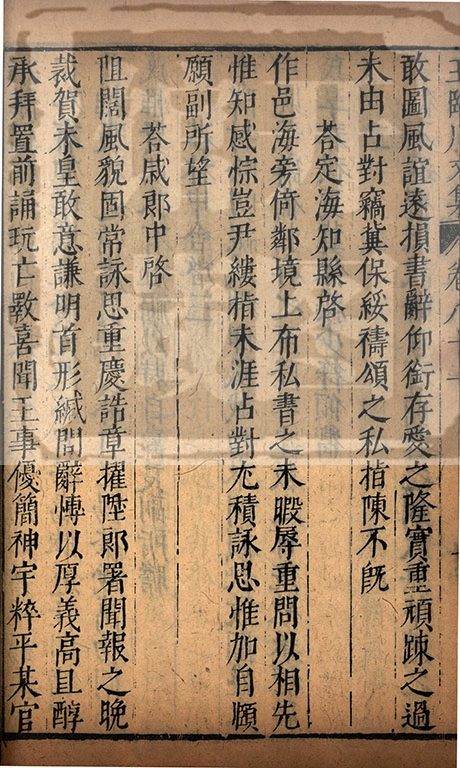 王臨川文集 卷八十
敢圖風誼遠損書辭仰銜存愛之隆實重頑踈之過
未由占對竊冀保綏禱頌之私指陳不旣
荅定海知縣啓
作邑海旁倚鄰境上布私書之未暇辱重問以相先
惟知感悰豈尹縷指未涯占對尤積詠思惟加自愼
願副所望
荅戚郎中啓
阻闊風貌固常詠思重慶誥章擢陞郎署聞報之晚
裁賀未皇敢意謙明首形緘問辭慱以厚義高且醇
承拜置前誦玩亡斁喜聞王事優簡神宇粹平某官